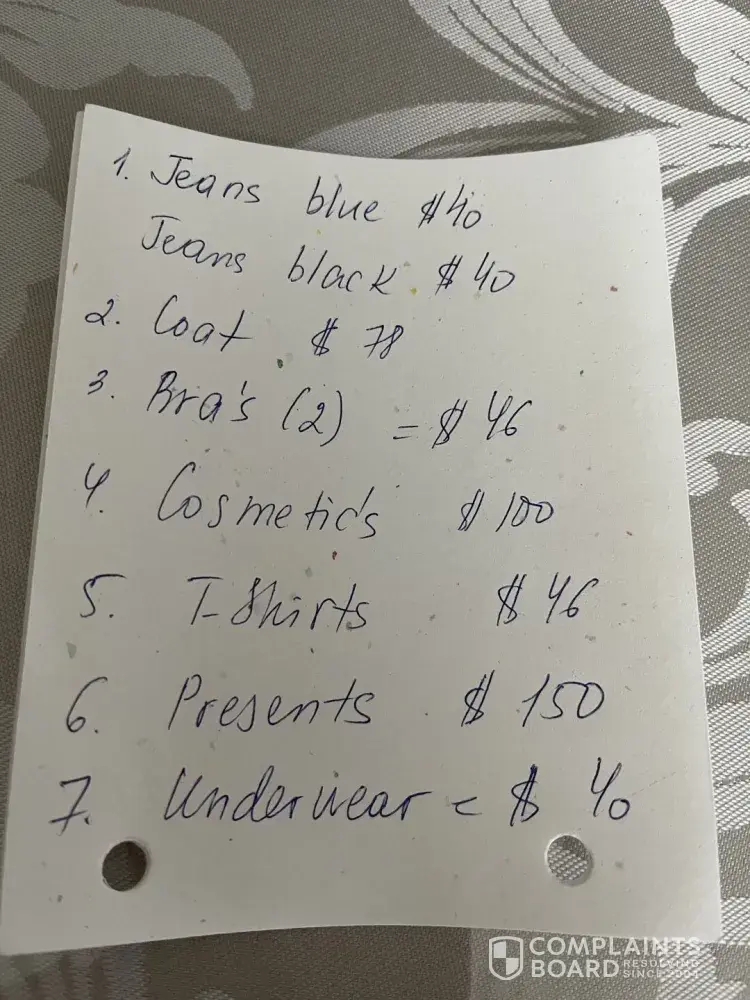 1. Jeans blue $40
Jeans black $40
2. Coat $ 78
3. Bra's (2) = $ 46
4. Cosmetic's $ 100
5. T-Shirts $ 46
6. Presents $ 150
7. Underwear = $ 40
COMPLAINTS
BOARD RESOLVING
SINCE 2004